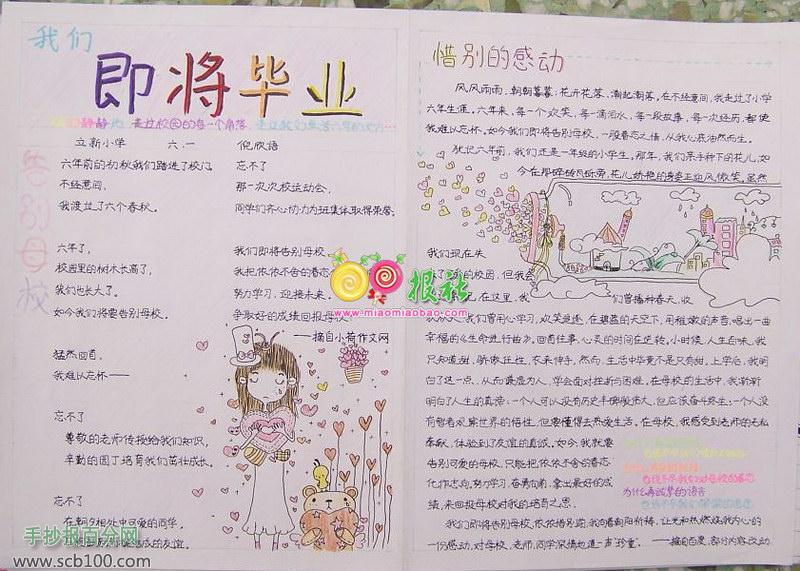 我们
即将毕业
走过校园的每一个角落
立新小学 六.一 倪欣语
告别母校
六年前的初秋我们踏进了校门
不经意间,
我渡过了六个春秋。
六年了,
校园里的树木长高了,
我们也长大了。
如今我们将要告别母校。
猛然回首,
我难以忘怀——
忘不了
尊敬的老师传授给我们知识,
辛勤的园丁培育我们茁壮成长。
忘不了
在朝夕相处中可爱的同学,
成的友谊。
忘不了
那一次次校运动会,
同学们齐心协力为班集体取得荣誉。
我们即将告别母校,
我把依依不舍的眷恋
努力学习,迎接未来。
争取好的成绩回报母校!
——摘自小荷作文网
惜别的感动
风风雨雨,朝朝暮暮;花开花落,潮起潮落。在不经意间,我走过了小学
六年生涯。六年来,每一个欢笑,每一滴泪水,每一段故事,每一次经历,都使
我难以忘怀。如今我们即将告别母校,一股眷恋之情,从我心底油然而生。
犹记六年前,我们还是一年级的小学生。那年,我们亲手种下的花儿,如
今在那
迎风微笑。虽然
我们现在失
的校园,但我会
记,在这里,我
们曾播种春天,收
我们曾用心学习,欢笑追逐,在碧蓝的天空下,用稚嫩的声音,唱出一曲
幸福的《生命进行曲》。回首往事,心灵的时间在逆转。小时候,人生百味,我
只知道甜,骄傲任性,不来伸手。然而,生活中毕竟不是只有甜,上学后,我明
白了这一点,从而谦虚为人,学会面对挫折与困难。在母校的生活中,我渐渐
明白了人生的真谛:一个人可以没有历史丰碑般伟大,但应该奋斗终生;一个人没
有智者观察世界的悟性,但要懂得去热爱生活。在母校,我感受到老师的无私
奉献,体验到了友谊的真诚。如今,我就要
告别可爱的母校,只能把依依不舍的眷恋
化作志向,努力学习,奋勇向前,拿出最好的成
绩,来回报母校对我的培育之恩。
我们即将告别母校,依依惜别,
朝阳祈祷,让光和热燃
我内心的
一份感动,对母校,老师,同学深情地道一声“珍重”。——摘自百度,部分内容改动
报社
www.miaomiaobao.com
手抄报百分网
www.scb100.com